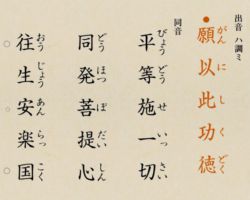 出音 ハ調ミ
願以此功徳
がんにしくどく
同音
平等施一切
びょうどうせいっさい
同発菩提心
どうほつぼだいしん
往生安楽国
おうじょうあんらっこく